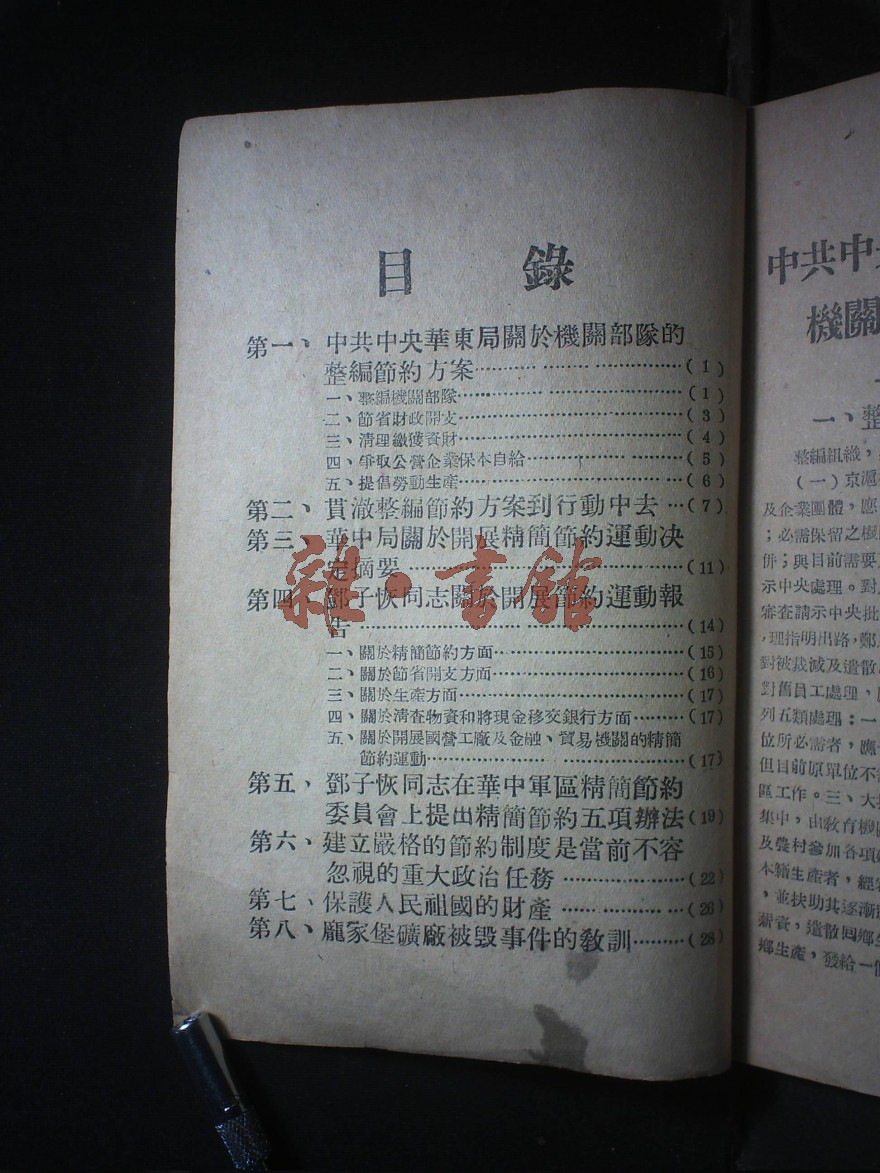 目錄
第一、中共中央華東局關於機關部隊的
整編節約方案……………………(1)
一、整編機關部隊……………………(1)
二、節省財政開支……………………(3)
三、清理繳獲資財……………………(4)
四、爭取公營企業保本自給……………(5)
五、提倡勞動生產……………………(6)
第二、貫澈整編節約方案到行動中去…(7)
第三、華中局關於開展精簡節約運動決
定摘要……………………(11)
第四、鄧子恢同志關於開展節約運動報
告……………………(14)
一、關於精簡節約方面……………………(15)
二、關於節省開支方面……………………(16)
三、關於生產方面……………………(17)
四、關於清查物資和將現金移交銀行方面………(17)
五、關於開展國營工廠及金融、貿易機關的精簡
節約運動……………………(17)
第五、鄧子恢同志在華中軍區精簡節約
委員會上提出精簡節約五項辦法(19)
第六、建立嚴格的節約制度是當前不容
忽視的重大政治任務……………(22)
第七、保護人民祖國的財產……………(26)
第八、龐家堡礦廠被毀事件的教訓………(28)
雜·書館
中共中
機關
一、整
整編組織，
(一)京滬
及企業團體，應
；必需保留之機
併；與目前需要
示中央處理。對
審查請示中央批
，理指明出路，鄭
對被裁減及遣散
對舊員工處理，
列五類處理：一
位所必需者，應
但目前原單位不
區工作。三、大
集中，由教育機
及農村參加各項
本籍生產者，經
，並扶助其逐漸
薪資，遣散回鄉
鄉生產，發給一個